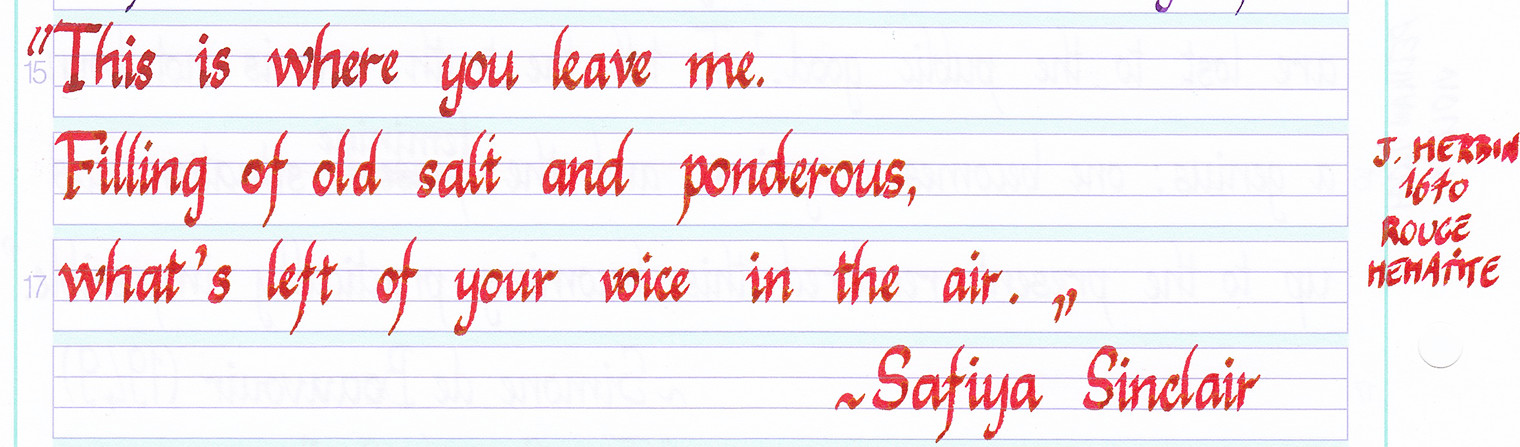 "This is where you leave me.
15
Filling of old salt and ponderous,
what's left of your voice in the air. „
17
~Safiya Sinclair
J. HERBIN
1670
ROUGE
HEMATITE